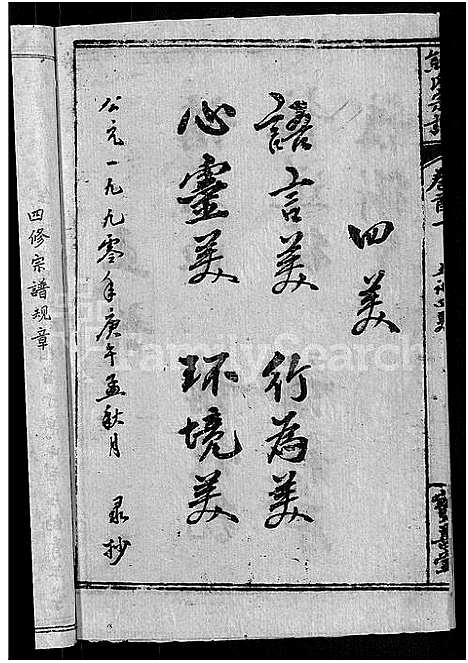 四美
語言美 行為美
心靈美 环境美
公元一九九零年庚午孟秋月 录抄
四修宗譜规章
卷首一
FamilySearch